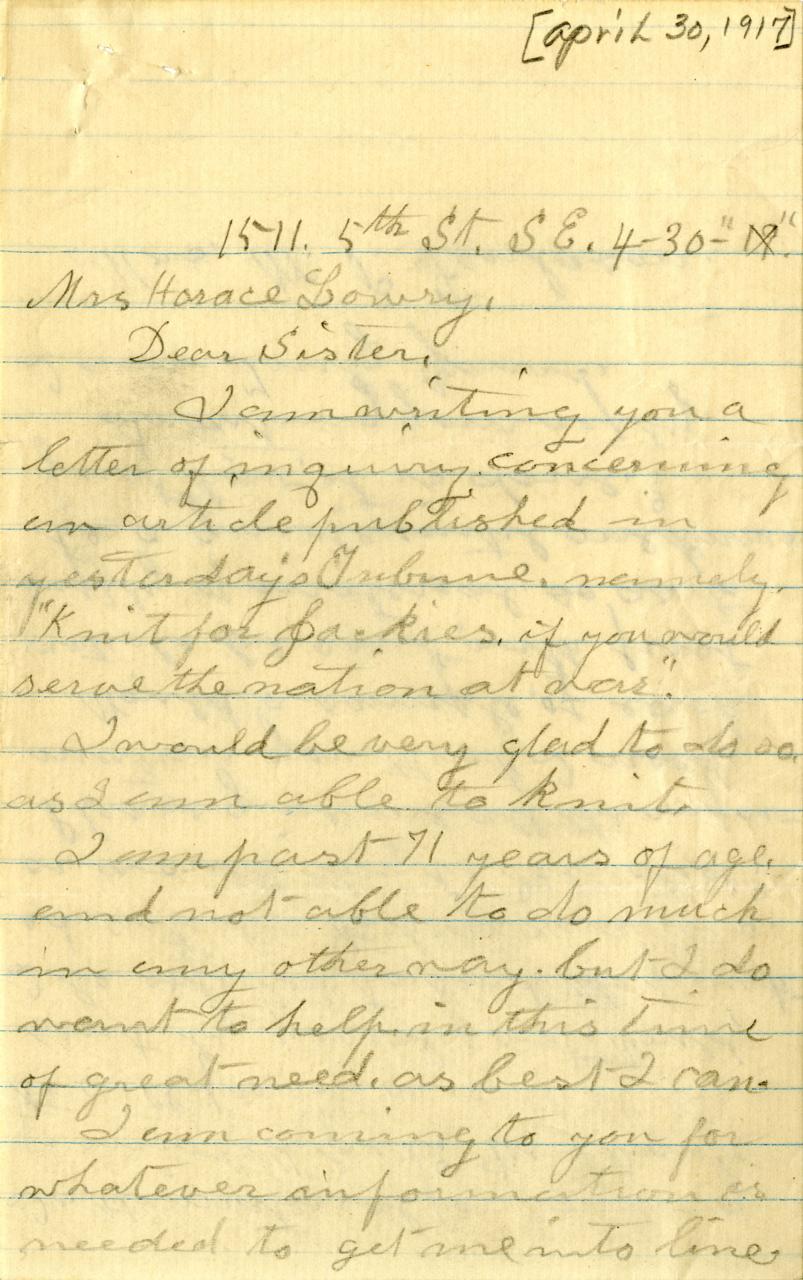 [april 30, 1917]
1511. 5th St. S E. 4-30-"
Mrs Horace Lowry,
Dear Sister,
I am writing you a
letter of inquiry, concerning
an article published in
yesterdays Tribune, namely,
"Knit for Jackies, if you would
serve the nation at war".
I would be very glad to do so,
as I am able to knit,
I am past 71 years of age,
and not able to do much
in any other way. but I do
want to help, in this time
of great need, as best I can.
I am coming to you for
whatever information is
needed to get me into line,